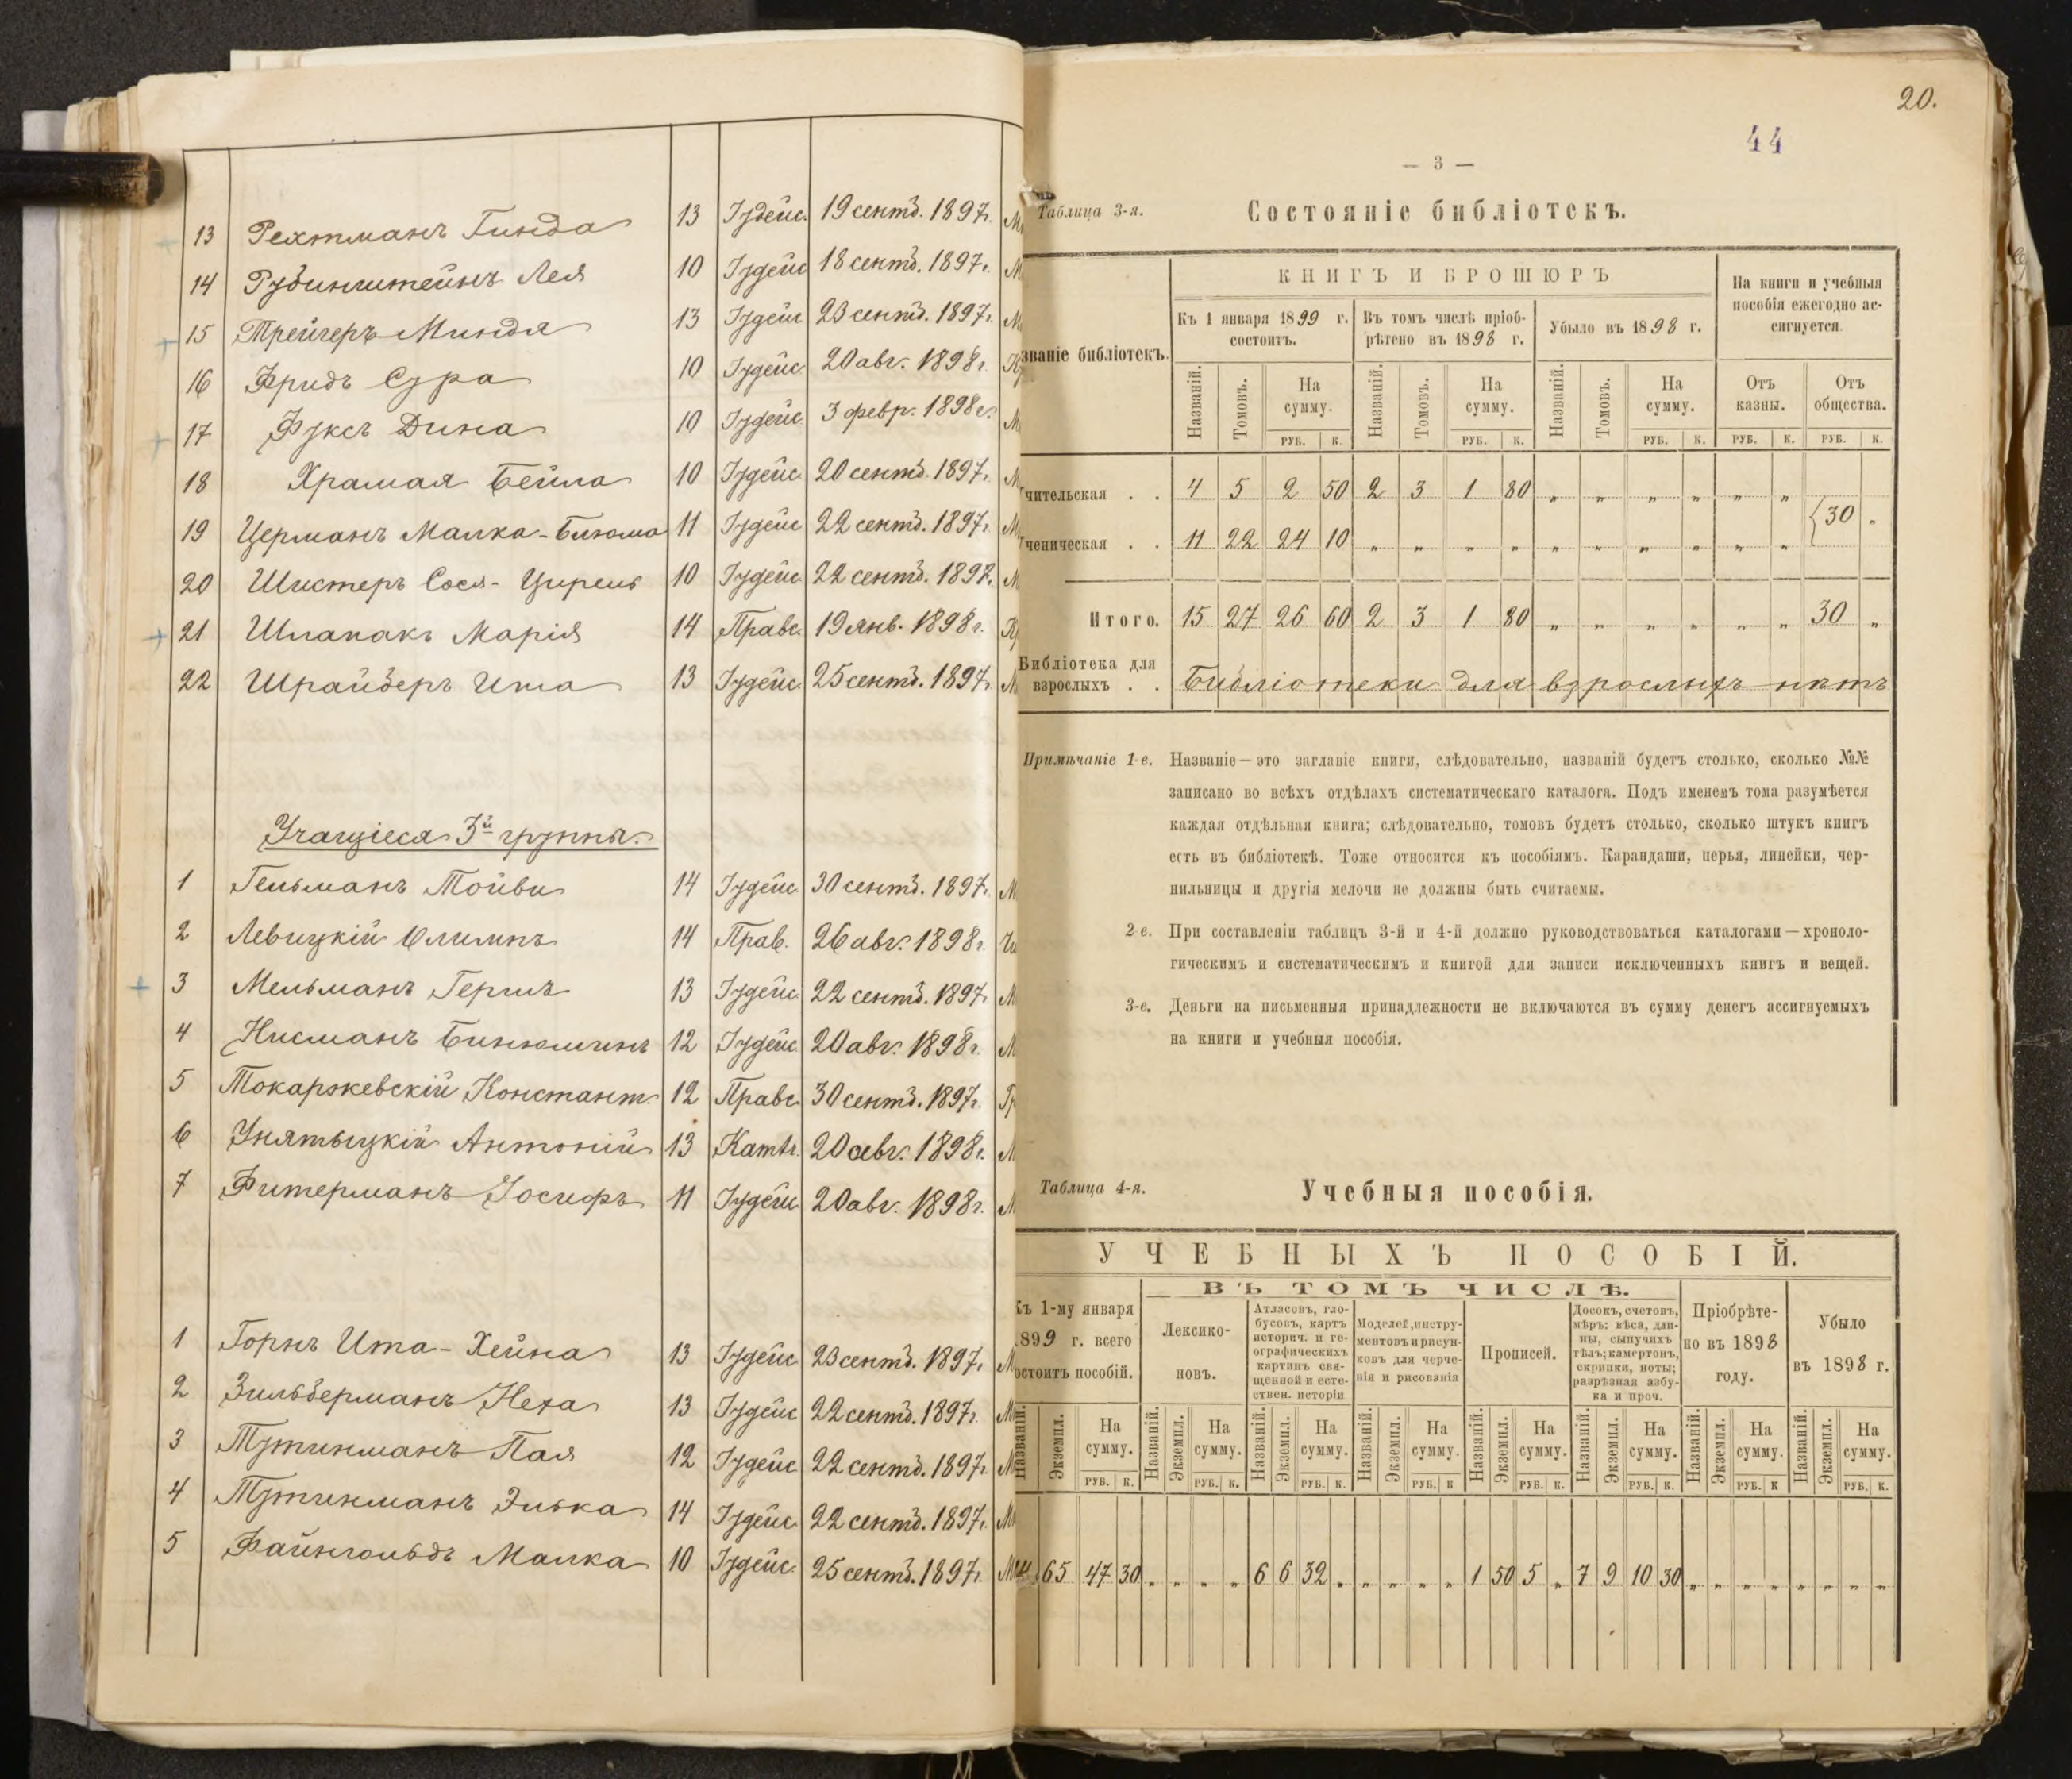 13 Рехтманъ Гинда 13 Іудейс. 19 сентб. 1897г.
14 Рубинштейнъ Лея 10 Іудейс 18 сентб. 1897г.
15 Трейгеръ Миндя 13 Іудейс 23 сентб. 1897г.
16 Фридъ Сура 10 Іудейс 20 авг. 1898г.
17 Фуксъ Дина 10 Іудейс. 3 февр. 1898г.
18 Храмая Бейла 10 Іудейс 20 сентб. 1897г.
19 Церманъ Малка-Блюма 11 Іудейс 22 сентб. 1897г.
20 Шистеръ Сося-Цирель 10 Іудейс. 22 сентб. 1897г.
21 Шлапакъ Марія 14 Правс. 19 янв. 1898г.
22 Шрайберъ Ита 13 Іудейс. 25 сентб. 1897г.
Учащіеся 3й группы.
1 Гельманъ Тойви 14 Іудейс 30 сентб. 1897г.
2 Левицкій Олимпъ 14 Прав. 26 авг. 1898г.
3 Мельманъ Гершъ 13 Іудейс 22 сентб. 1897г.
4 Нисманъ Бинюминъ 12 Іудейс 20 авг. 1898г.
5 Токаржевскій Констант. 12 Правс 30 сентб. 1897г.
6 Унятыцкій Антоній 13 Катл. 20 авг. 1898г.
7 Фитерманъ Іосифъ 11 Іудейс 20 авг. 1898г.
1 Горнъ Ита-Хейна 13 Іудейс 23 сентб. 1897г.
2 Зильберманъ Неха 13 Іудейс 22 сентб. 1897г.
3 Тутинманъ Пая 12 Іудейс 22 сентб. 1897г.
4 Тутинманъ Элька 14 Іудейс. 22 сентб. 1897г.
5 Файнгольдъ Малка 10 Іудейс. 25 сентб. 1897г.
20.
44
— 3 —
Таблица 3-я. Состояніе библіотекъ.
званіе библіотекъ.
КНИГЪ И БРОШЮРЪ
На книги и учебныя пособія ежегодно ассигнуется.
Къ 1 января 1899 г. состоитъ.
Въ томъ числѣ пріобрѣтено въ 1898 г.
Убыло въ 1898 г.
Названій. Томовъ. На сумму. Названій. Томовъ. На сумму. Названій. Томовъ. На сумму. Отъ казны. Отъ общества.
РУБ. К. РУБ. К. РУБ. К. РУБ. К. РУБ. К.
чительская . . 4 5 2 50 2 3 1 80 „ „ „ „ „ „
{30 „
ченическая . . 11 22 24 10 „ „ „ „ „ „ „ „ „ „
Итого. 15 27 26 60 2 3 1 80 „ „ „ „ „ „ 30 „
Библіотека для взрослыхъ . . Библіотеки для взрослыхъ нѣтъ
Примѣчаніе 1-е. Названіе — это заглавіе книги, слѣдовательно, названій будетъ столько, сколько №№
записано во всѣхъ отдѣлахъ систематическаго каталога. Подъ именемъ тома разумѣется
каждая отдѣльная книга; слѣдовательно, томовъ будетъ столько, сколько штукъ книгъ
есть въ библіотекѣ. Тоже относится къ пособіямъ. Карандаши, перья, линейки, чер-
нильницы и другія мелочи не должны быть считаемы.
2-е. При составленіи таблицъ 3-й и 4-й должно руководствоваться каталогами — хроноло-
гическимъ и систематическимъ и книгой для записи исключенныхъ книгъ и вещей.
3-е. Деньги на письменныя принадлежности не включаются въ сумму денегъ ассигнуемыхъ
на книги и учебныя пособія.
Таблица 4-я. Учебныя пособія.
УЧЕБНЫХЪ ПОСОБІЙ.
ВЪ ТОМЪ ЧИСЛѢ.
Къ 1-му января 1899 г. всего остоитъ пособій.
Лексико-
новъ.
Атласовъ, гло-
бусовъ, картъ
историч. и ге-
ографическихъ
картинъ свя-
щенной и есте-
ствен. исторіи
Моделей, инстру-
ментовъ и рисун-
ковъ для черче-
нія и рисованія
Прописей.
Досокъ, счетовъ,
мѣръ: вѣса, дли-
ны, сыпучихъ
тѣлъ; камертонъ,
скрипки, ноты;
разрѣзная азбу-
ка и проч.
Пріобрѣте-
но въ 1898
году.
Убыло
въ 1898 г.
Названій. Экземпл. На сумму. Названій. Экземпл. На сумму. Названій. Экземпл. На сумму. Названій. Экземпл. На сумму. Названій. Экземпл. На сумму. Названій. Экземпл. На сумму. Названій. Экземпл. На сумму. Названій. Экземпл. На сумму.
РУБ. К. РУБ. К. РУБ. К. РУБ. К РУБ. К. РУБ. К. РУБ. К РУБ. К.
65 47 30 „ „ „ „ 6 6 32 „ „ „ „ „ 1 50 5 „ 7 9 10 30 „ „ „ „ „ „ „ „